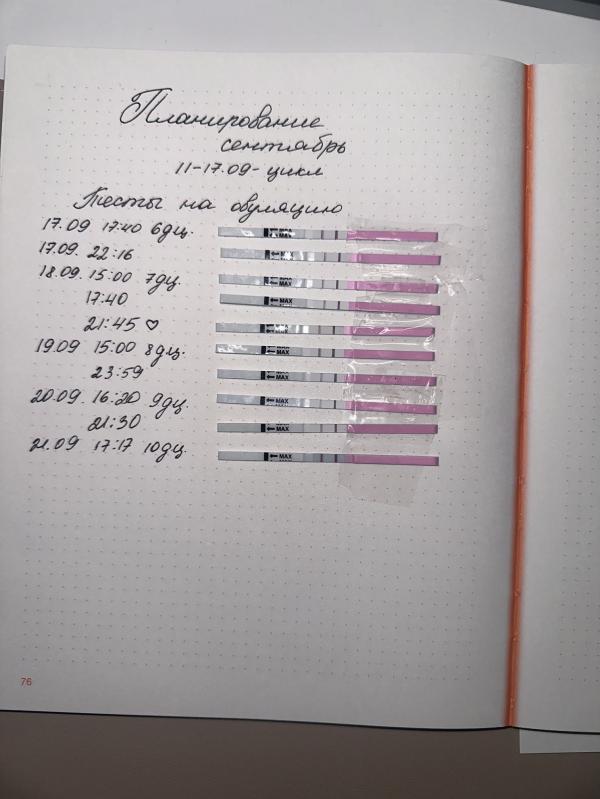 Планирование
сентябрь
11-17.09-цикл
Тесты на овуляцию
17.09 17:40 6дц.
17.09. 22:16
18.09. 15:00 7дц.
17:40
21:45 ♡
19.09 15:00 8дц.
23:59
20.09. 16:20 9дц.
21:30
21.09 17:17 10дц.
← MAX
← MAX
← MAX
← MAX
← MAX
← MAX
← MAX
← MAX
← MAX
← MAX
76